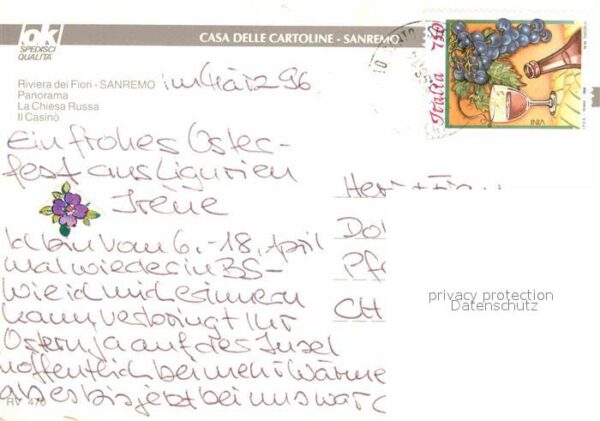 ok
SPEDISCI
QUALITÀ
CASA DELLE CARTOLINE - SANREMO
Italia 750
VINI
Riviera dei Fiori - SANREMO
Panorama
La Chiesa Russa
Il Casinò
im März 96
Ein frohes Oster-
fest aus Ligurien
Irène
Ich bin vom 6. - 18. April
mal wieder in BS -
wie ich mich erinnern
kann verbringt Ihr
Ostern ja auf des Insel
hoffentlich bei mehr Wärme
als es bis jetzt bei uns war
CH
privacy protection
Datenschutz